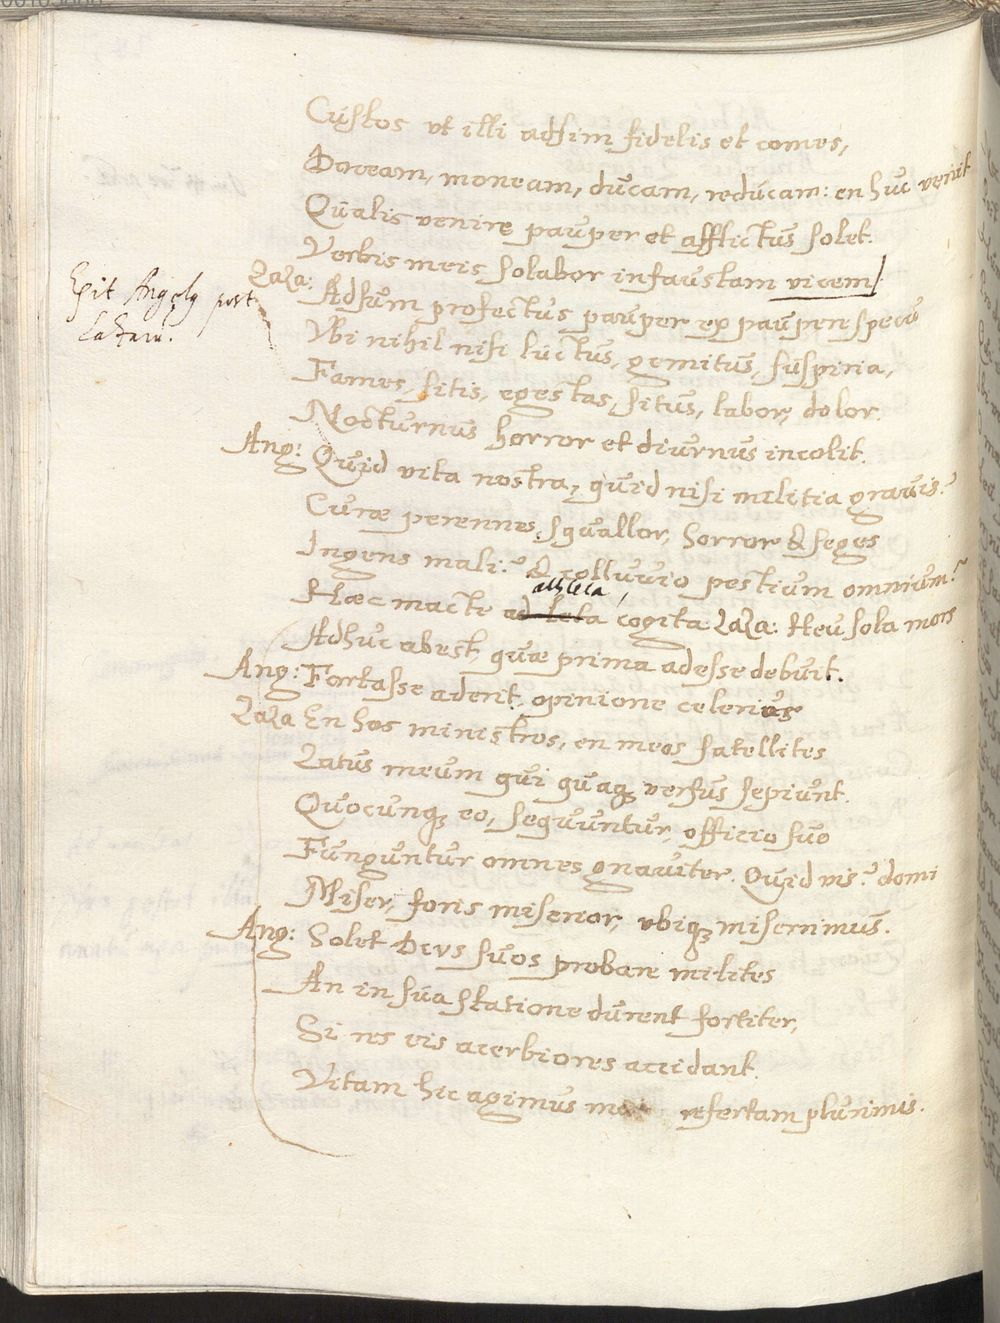 Custos ut illi adsim fidelis et comes,
Doceam, moneam, ducam, reducam: en huc venit
Qualis venire pauper et afflictus solet.
Verbis meis solabor infaustam vicem
Exit Angelq post
Lazaru.
Laza: Adsum profectus pauper ex paupere specu
Vbi nihil nisi luctus, gemitus, suspiria,
Fames, sitis, egestas, situs, labor, dolor.
Nocturnus horror et diurnus incolit.
Ang: Quid vita nostra, quid nisi militia gravis?
Curæ perennes, squallor, horror & seges
Ingens mali? & colluvio pestium omnium?
athleta,
Hæc macte ad leta cogita Laza: Heu sola mors
Adhuc abest, quæ prima adesse debuit.
Ang: Fortasse aderit, opinione celerius
Laza En hos ministros, en meos satellites
Latus meum qui quaq; versus sepiunt.
Quocunq; eo, sequuntur, officio suo
Funguntur omnes gnaviter. Quid vis? domi
Miser, foris miserior, ubiq; miserrimus.
Ang: Solet Deus suos probare milites
An in sua statione durent fortiter,
Si res eis acerbiores accidant.
Vitam hic agimus refertam plurimis.